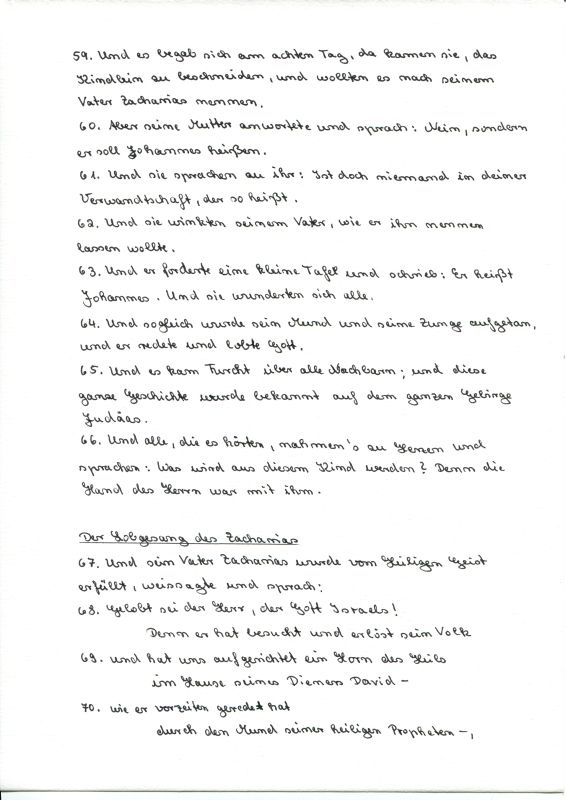 59. Und es begab sich am achten Tag, da kamen sie, das
Kindlein zu beschneiden, und wollten es nach seinem
Vater Zacharias nennen.
60. Aber seine Mutter antwortete und sprach: Nein, sondern
er soll Johannes heißen.
61. Und sie sprachen zu ihr: Ist doch niemand in deiner
Verwandtschaft, der so heißt.
62. Und sie winkten seinem Vater, wie er ihn nennen
lassen wollte.
63. Und er forderte eine kleine Tafel und schrieb: Er heißt
Johannes. Und sie wunderten sich alle.
64. Und sogleich wurde sein Mund und seine Zunge aufgetan,
und er redete und lobte Gott.
65. Und es kam Furcht über alle Nachbarn; und diese
ganze Geschichte wurde bekannt auf dem ganzen Gebirge
Judäas.
66. Und alle, die es hörten, nahmen's zu Herzen und
sprachen: Was wird aus diesem Kind werden? Denn die
Hand des Herrn war mit ihm.
Der Lobgesang des Zacharias
67. Und sein Vater Zacharias wurde vom Heiligen Geist
erfüllt, weissagte und sprach:
68. Gelobt sei der Herr, der Gott Israels!
Denn er hat besucht und erlöst sein Volk
69. und hat uns aufgerichtet ein Horn des Heils
im Hause seines Dieners David –
70. wie er vorzeiten geredet hat
durch den Mund seiner heiligen Propheten –,